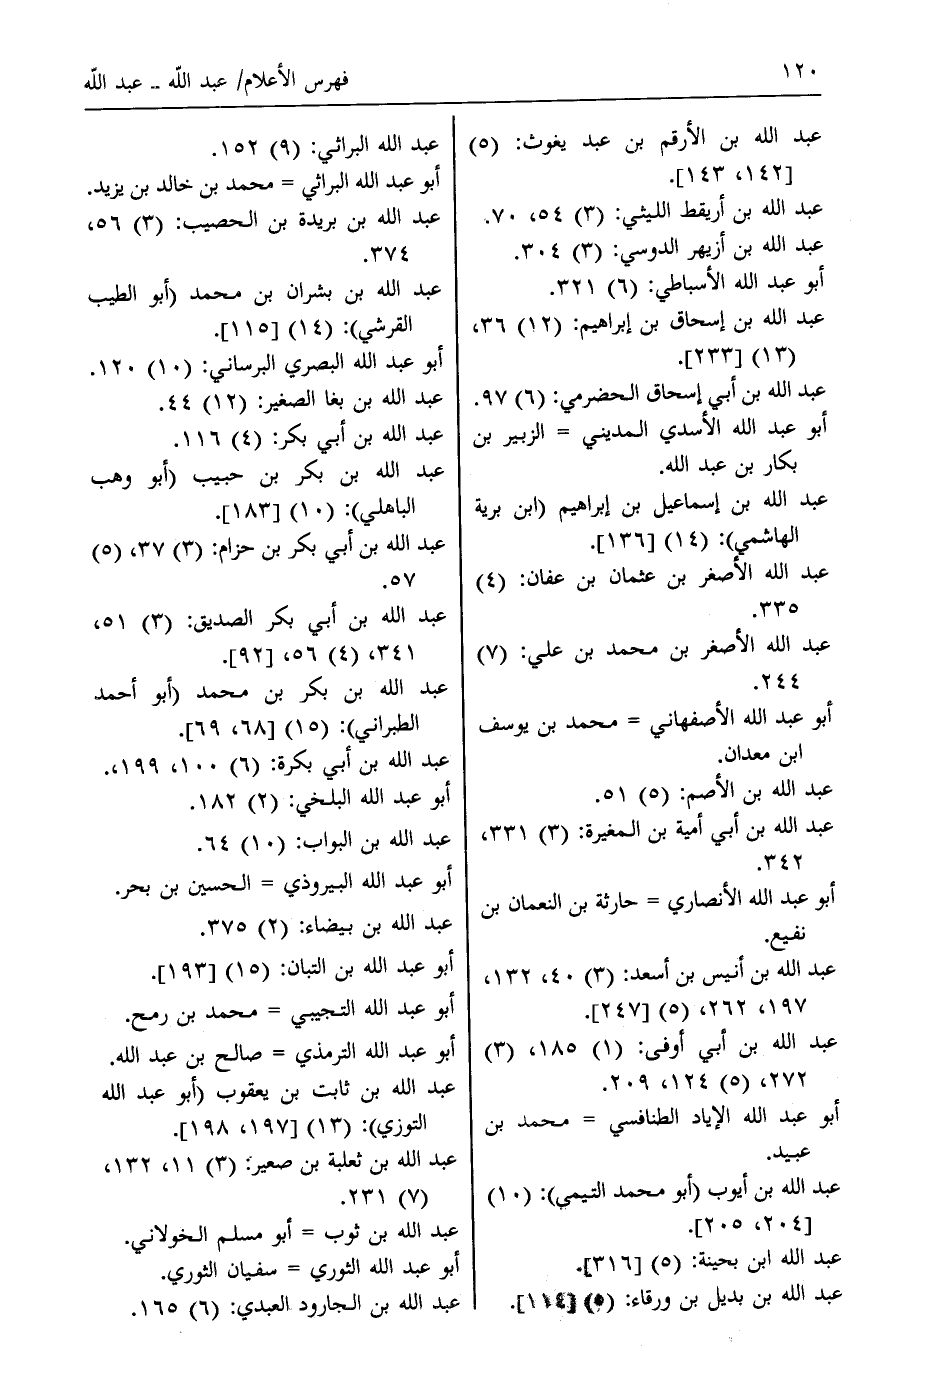 ١٢٠
فهرس الأعلام/ عبد الله ــ عبد الله
عبد الله بن الأرقم بن عبد يغوث: (٥)
[١٤٢، ١٤٣].
عبد الله بن أريقط الليثي: (٣) ٥٤، ٧٠.
عبد الله بن أزيهر الدوسي: (٣) ٣٠٤.
أبو عبد الله الأسباطي: (٦) ٣٢١.
عبد الله بن إسحاق بن إبراهيم: (١٢) ٣٦،
(١٣) [٢٣٣].
عبد الله بن أبي إسحاق الحضرمي: (٦) ٩٧.
أبو عبد الله الأسدي المديني = الزبير بن
بكار بن عبد الله.
عبد الله بن إسماعيل بن إبراهيم (ابن برية
الهاشمي): (١٤) [١٣٦].
عبد الله الأصغر بن عثمان بن عفان: (٤)
٣٣٥.
عبد الله الأصغر بن محمد بن علي: (٧)
٢٤٤.
أبو عبد الله الأصفهاني = محمد بن يوسف
ابن معدان.
عبد الله بن الأصم: (٥) ٥١.
عبد الله بن أبي أمية بن المغيرة: (٣) ٣٣١،
٣٤٢.
أبو عبد الله الأنصاري = حارثة بن النعمان بن
نفيع.
عبد الله بن أنيس بن أسعد: (٣) ٤٠، ١٣٢،
١٩٧، ٢٦٢، (٥) [٢٤٧].
عبد الله بن أبي أوفى: (١) ١٨٥، (٣)
٢٧٢، (٥) ١٢٤، ٢٠٩.
أبو عبد الله الإياد الطنافسي = محمد بن
عبيد.
عبد الله بن أيوب (أبو محمد التيمي): (١٠)
[٢٠٤، ٢٠٥].
عبد الله ابن بحينة: (٥) [٣١٦].
عبد الله بن بديل بن ورقاء: (٥) [١١٤].
عبد الله البراثي: (٩) ١٥٢.
أبو عبد الله البراثي = محمد بن خالد بن يزيد.
عبد الله بن بريدة بن الحصيب: (٣) ٥٦،
٣٧٤.
عبد الله بن بشران بن محمد (أبو الطيب
القرشي): (١٤) [١١٥].
أبو عبد الله البصري البرساني: (١٠) ١٢٠.
عبد الله بن بغا الصغير: (١٢) ٤٤.
عبد الله بن أبي بكر: (٤) ١١٦.
عبد الله بن بكر بن حبيب (أبو وهب
الباهلي): (١٠) [١٨٣].
عبد الله بن أبي بكر بن حزام: (٣) ٣٧، (٥)
٥٧.
عبد الله بن أبي بكر الصديق: (٣) ٥١،
٣٤١، (٤) ٥٦، [٩٢].
عبد الله بن بكر بن محمد (أبو أحمد
الطبراني): (١٥) [٦٨، ٦٩].
عبد الله بن أبي بكرة: (٦) ١٠٠، ١٩٩،.
أبو عبد الله البلخي: (٢) ١٨٢.
عبد الله بن البواب: (١٠) ٦٤.
أبو عبد الله البيروذي = الحسين بن بحر.
عبد الله بن بيضاء: (٢) ٣٧٥.
أبو عبد الله بن التبان: (١٥) [١٩٣].
أبو عبد الله التجيبي = محمد بن رمح.
أبو عبد الله الترمذي = صالح بن عبد الله.
عبد الله بن ثابت بن يعقوب (أبو عبد الله
التوزي): (١٣) [١٩٧، ١٩٨].
عبد الله بن ثعلبة بن صعير: (٣) ١١، ١٣٢،
(٧) ٢٣١.
عبد الله بن ثوب = أبو مسلم الخولاني.
أبو عبد الله الثوري = سفيان الثوري.
عبد الله بن الجارود العبدي: (٦) ١٦٥.